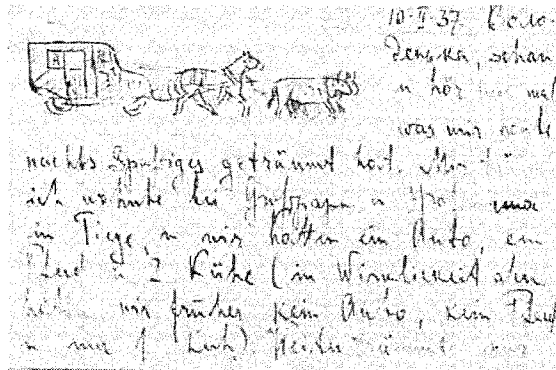 10.II.37. Воло-
денька, schau
u hör mal
was mir heute
nachts Spaßiges geträumt hat. Mir
ich wohnte bei Großpapa u Großmama
in Tiege, u wir hatten ein Auto, ein
Pferd u 2 Kühe (in Wirklichkeit aber
haben wir früher kein Auto, kein Pferd
u nur 1 Kuh). Heute träumte mir